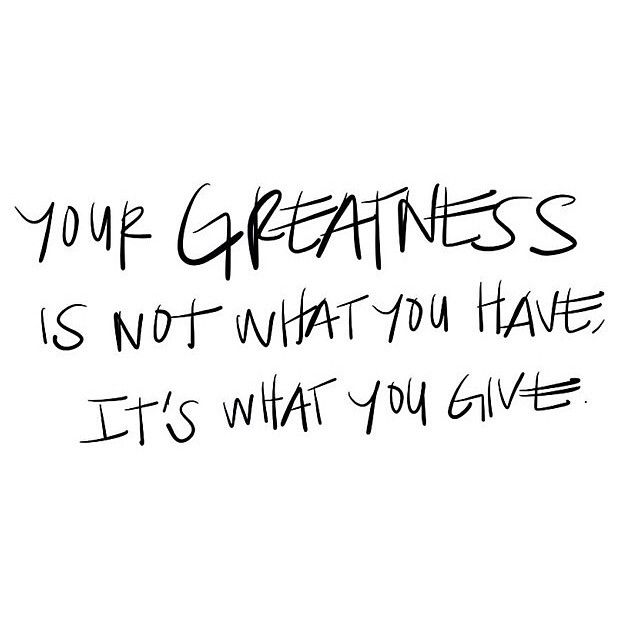 YOUR GREATNESS
IS NOT WHAT YOU HAVE,
IT'S WHAT YOU GIVE.